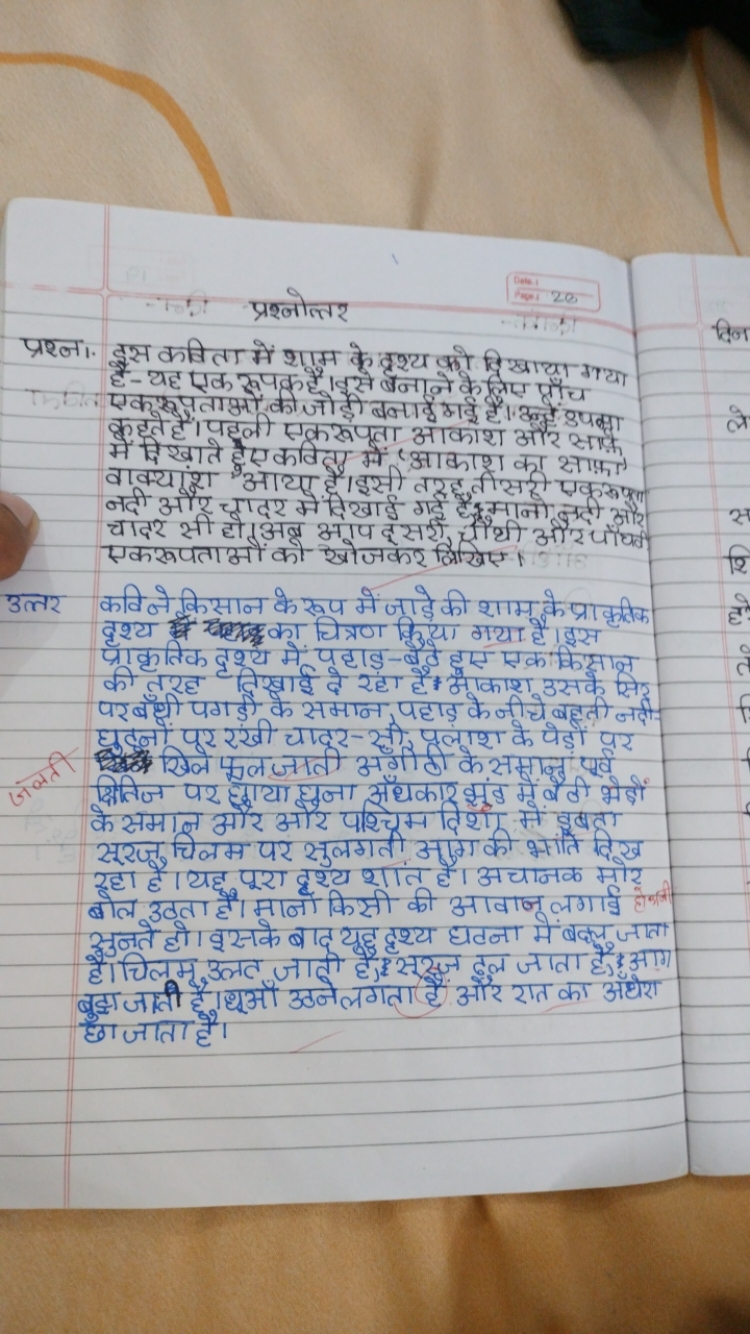 Date :
Page : 20
प्रश्नोत्तर
प्रश्न1. इस कविता में शाम के दृश्य को दिखाया गया
है - यह एक रूपक है। इसे बनाने के लिए पाँच
एकरूपताओं की जोड़ी बनाई गई है। उन्हें उपमा
कहते हैं। पहली एकरूपता आकाश और साफ़े
में दिखाते हुए कविता में 'आकाश का साफ़ा'
वाक्यांश आया है। इसी तरह तीसरी एकरूपता
नदी और चादर में दिखाई गई है, मानो नदी और
चादर सी हो। अब आप दूसरी, चौथी और पाँचवी
एकरूपताओं को खोजकर लिखिए।
उत्तर कवि ने किसान के रूप में जाड़े की शाम के प्राकृतिक
दृश्य का चित्रण किया गया है। इस
प्राकृतिक दृश्य में पहाड़ - बैठे हुए एक किसान
की तरह दिखाई दे रहा है। आकाश उसके सिर
पर बँधी पगड़ी के समान, पहाड़ के नीचे बहती नदी
घुटनों पर रखी चादर-सी, पलाश के पेड़ों पर
खिले फूल जाती अंगीठी के समान, पूर्व
जलती
क्षितिज पर छाया घना अँधकार झुंड में बैठी भेड़ों
के समान और और पश्चिम दिशा में डूबता
सूरज चिलम पर सुलगती आग की भांति दिख
रहा है। यह पूरा दृश्य शांत है। अचानक मोर
बोल उठता है। मानो किसी की आवाज़ लगाई
सुनते हो। इसके बाद यह दृश्य घटना में बदल जाता
है। चिलम उलट जाती है, सूरज डूल जाता है, आग
बुझ जाती है। धूआँ उठने लगता है और रात का अँधेरा
छा जाता है।
दिन